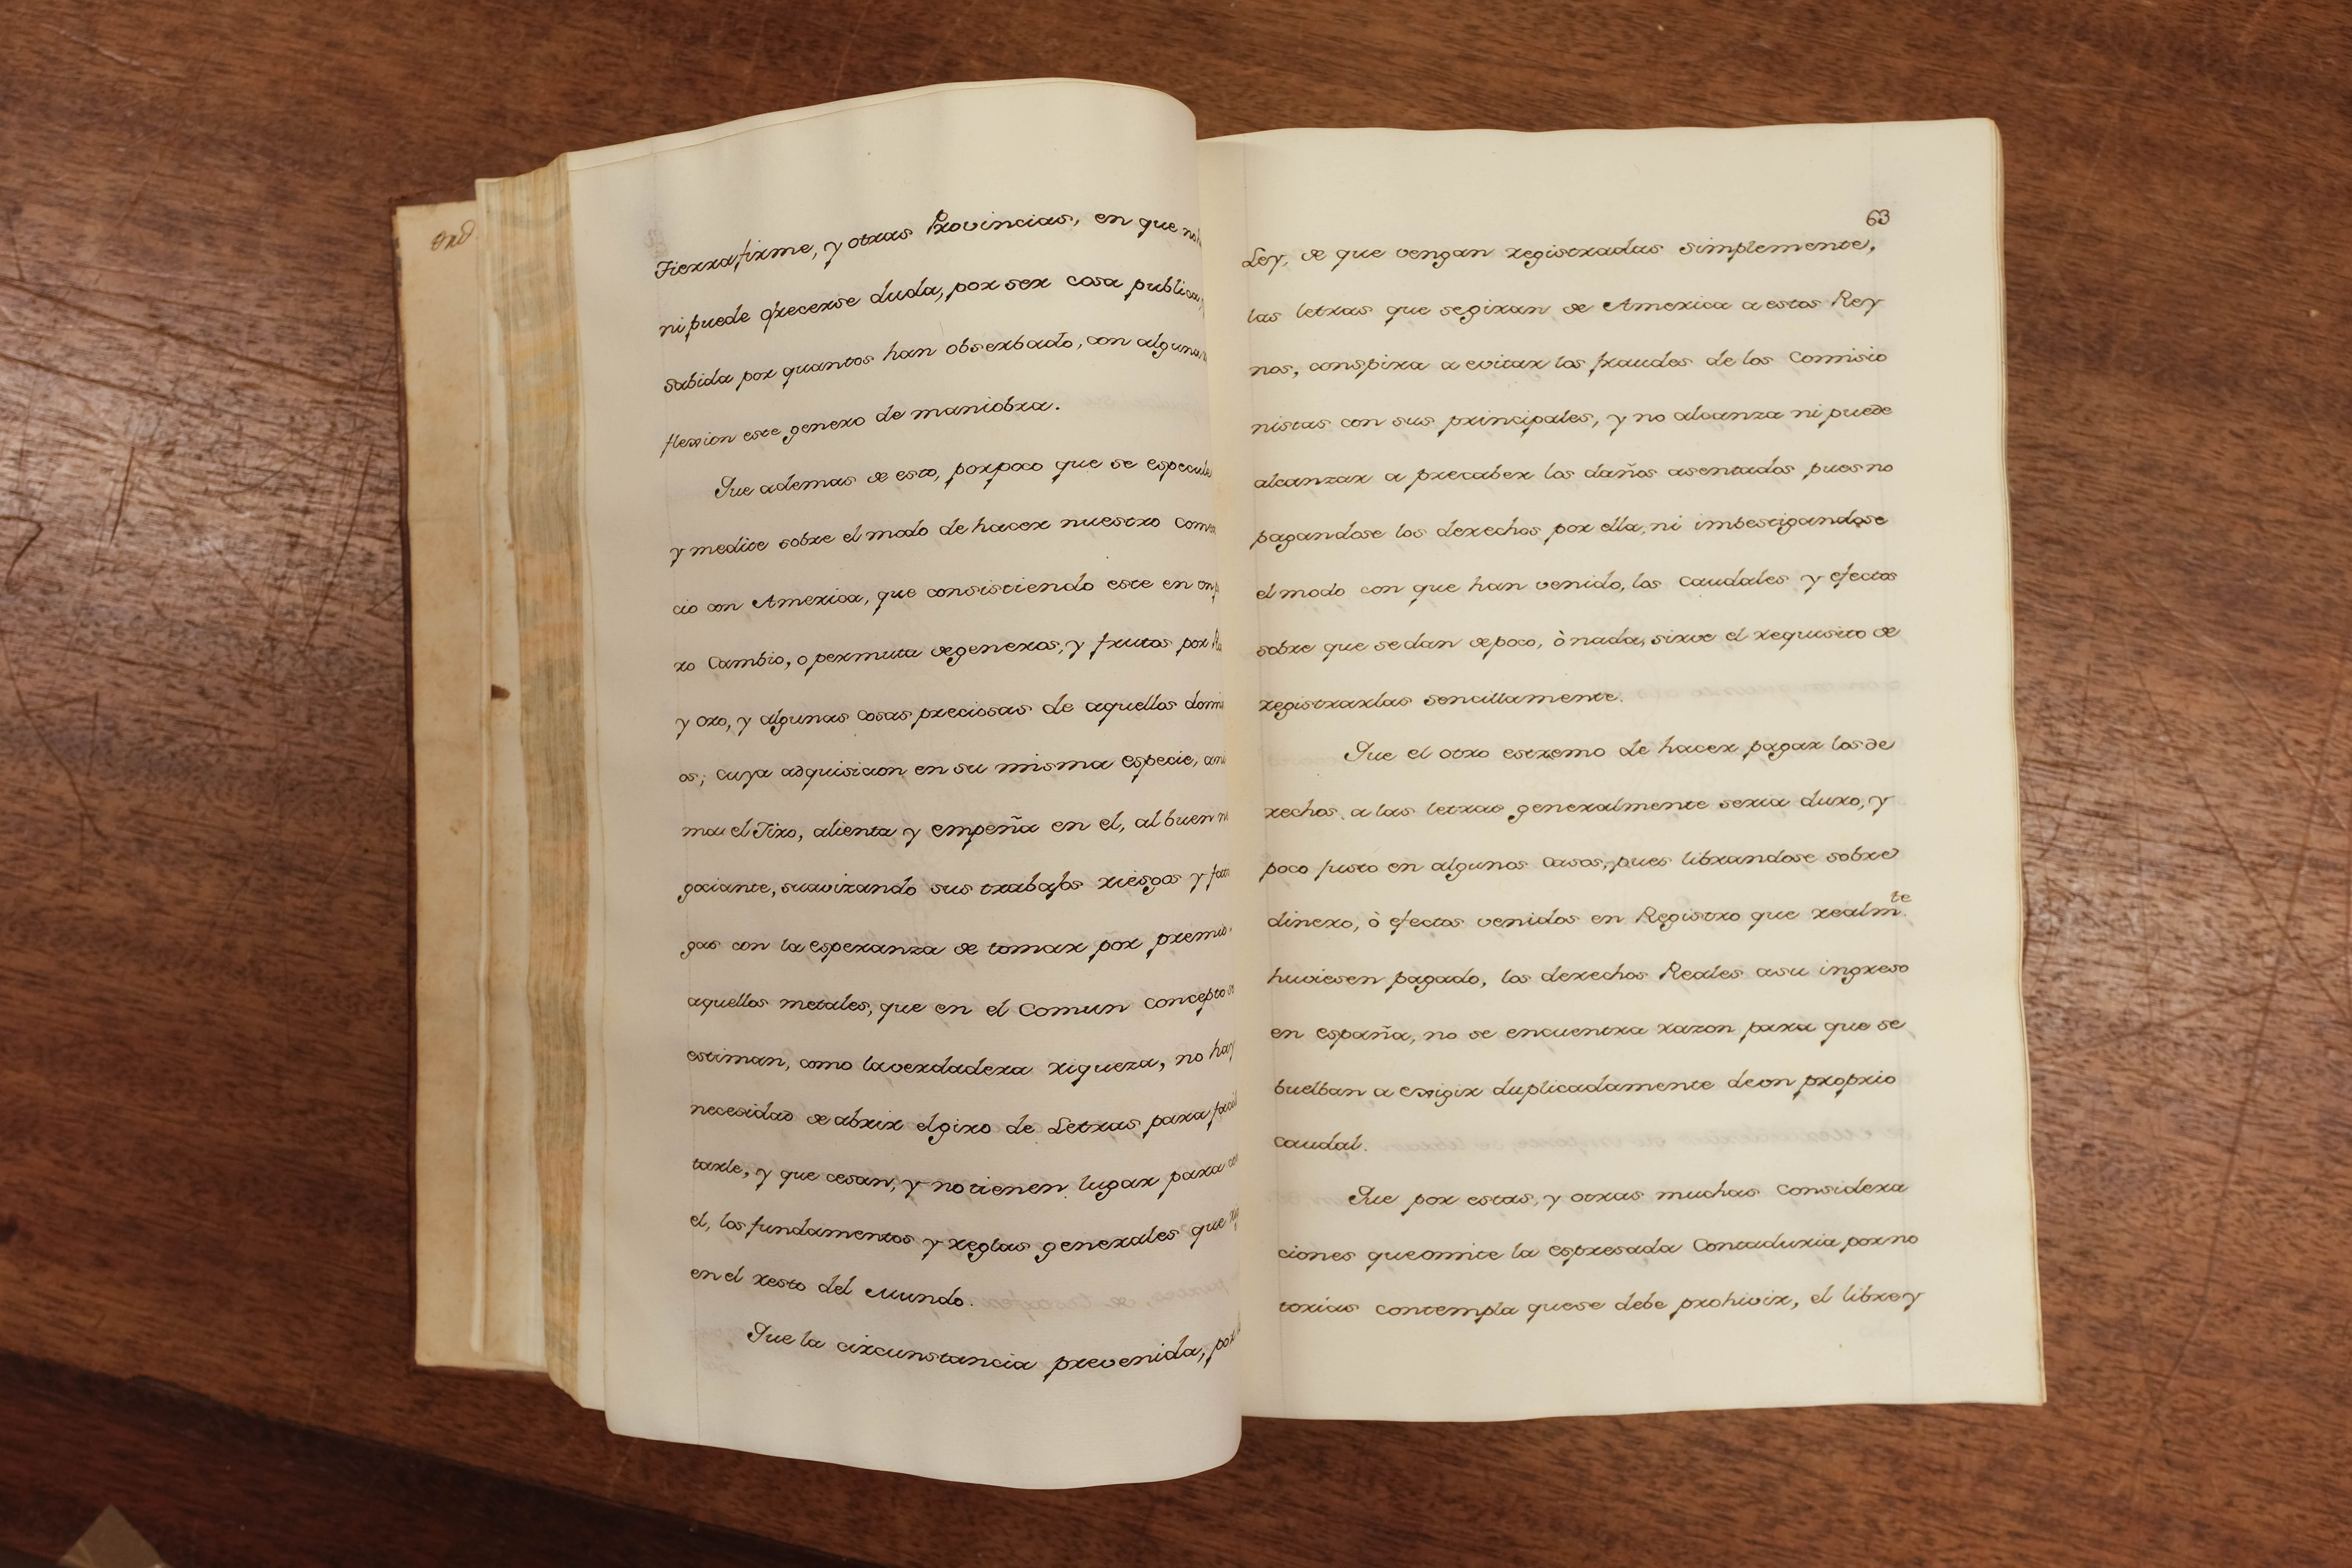 ord
Tierrafirme, y otras Provincias, en que no
ni puede ofrecerse duda, por ser cosa publica,
sabida por quantos han obserbado, con alguna
flexion este genero de maniobra.
Que ademas de esto, por poco que se especule
y medite sobre el modo de hacer nuestro Comer
cio con America, que consistiendo este en un
ro Cambio, o permuta de generos, y frutos por
y oro, y algunas cosas preciosas de aquellos domi
os; cuya adquisicion en su misma especie, ani
ma el Tiro, alienta y empeña en el, al buen
gociante, suavizando sus trabajos riesgos y fati
gas con la esperanza de tomar por premio
aquellos metales, que en el Comun Concepto
estiman, como la verdadera riqueza, no hay
necesidad de abrir el giro de Letras para facil
tarle, y que cesan, y no tienen lugar para
el, los fundamentos y reglas generales que
en el resto del Mundo.
Que la circunstancia prevenida, por
63
Ley, de que vengan registradas simplemente,
las letras que se giran de America a estos Rey
nos, conspira a evitar los fraudes de los Comisio
nistas con sus principales, y no alcanza ni puede
alcanzar a precaber los daños asentados pues no
pagandose los derechos por ella, ni imbestigandose
el modo con que han venido, los Caudales y efectos
sobre que se dan de poco, ò nada, sirve el requisito de
registrarlas sencillamente.
Que el otro estremo de hacer pagar los de
rechos a las letras generalmente seria duro, y
poco justo en algunos Casos, pues librandose sobre
dinero, ò efectos venidos en Registro que realm.te
huviesen pagado, los derechos Reales a su ingreso
en españa, no se encuentra razon para que se
buelban a exigir duplicadamente de un proprio
Caudal.
Que por estas, y otras muchas Considera
ciones que omite la espresada Contaduria por no
torias contempla que se debe prohivir, el libre y